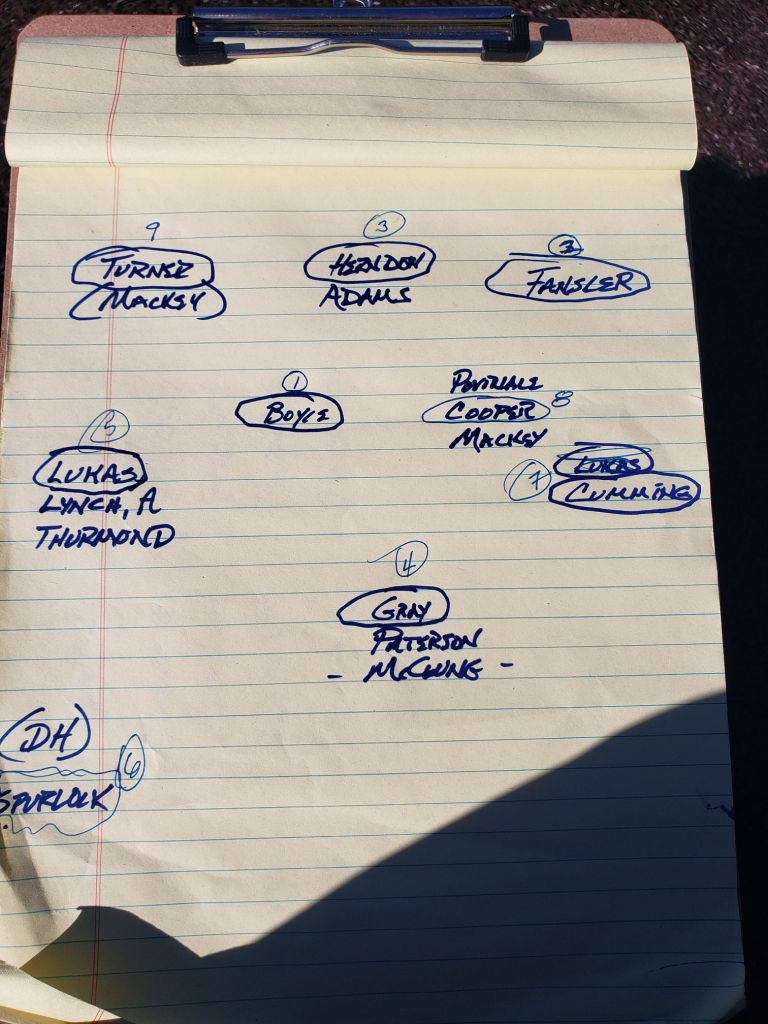 9
TURNER
MACKEY
3
HERNDON
ADAMS
FANSLER
1
BOYLE
POVIRALE
COOPER 8
MACKEY
5
LUKAS
LYNCH, A
THURMOND
LUKAS
7 CUMMING
4
GRAY
PATERSON
- McCLUNG -
(DH)
6
SPURLOCK